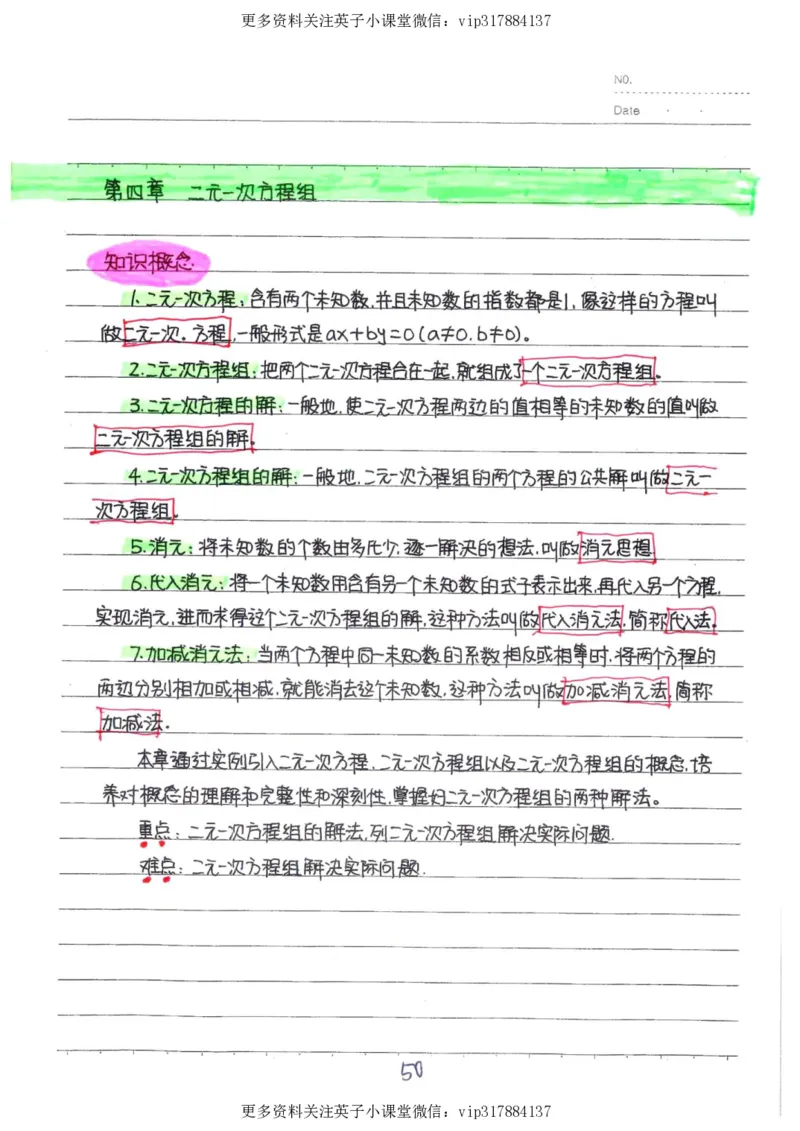 更多资料关注英子小课堂微信：vip317884137
NO.
Date
第四章 二元一次方程组
知识概念
1.二元一次方程：含有两个未知数,并且未知数的指数都是1,像这样的方程叫
做二元一次.方程,一般形式是ax+by=0(a≠0.b≠0)。
2.二元一次方程组：把两个二元一次方程合在一起,就组成了一个二元一次方程组。
3.二元一次方程的解：一般地,使二元一次方程两边的值相等的未知数的值叫做
二元一次方程组的解。
4.二元一次方程组的解：一般地,二元一次方程组的两个方程的公共解叫做二元一
次方程组。
5.消元：将未知数的个数由多化少,逐一解决的想法,叫做消元思想
6.代入消元：将一个未知数用含有另一个未知数的式子表示出来,再代入另一个方程,
实现消元,进而求得这个二元一次方程组的解,这种方法叫做代入消元法,简称代入法。
7.加减消元法：当两个方程中同一未知数的系数相反或相等时,将两个方程的
两边分别相加或相减,就能消去这个未知数,这种方法叫做加减消元法,简称
加减法.
本章通过实例引入二元一次方程,二元一次方程组以及二元一次方程组的概念,培
养对概念的理解和完整性和深刻性,掌握好二元一次方程组的两种解法。
重点：二元一次方程组的解法,列二元一次方程组解决实际问题.
难点：二元一次方程组解决实际问题.
50
更多资料关注英子小课堂微信：vip317884137